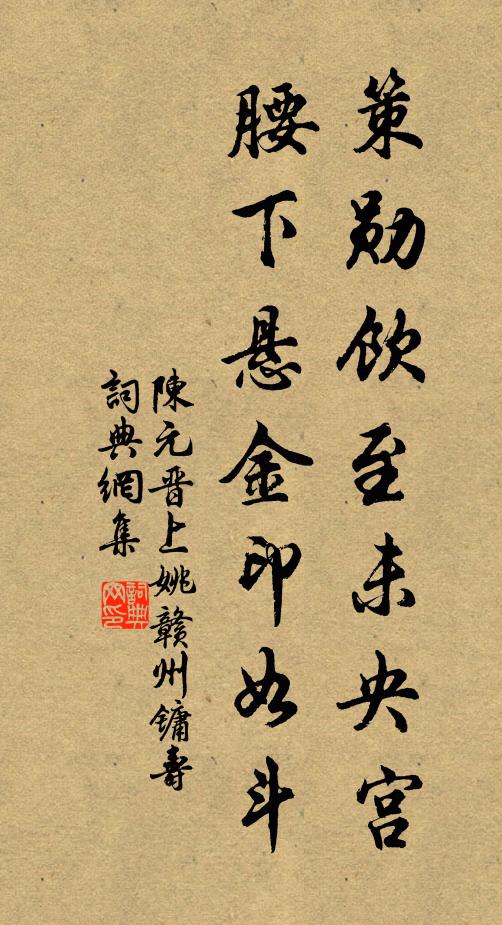 策勋饮至未央宫
腰下悬金印如斗
陳元晋上姚赣州镛壽
詞典網集
詞典网印